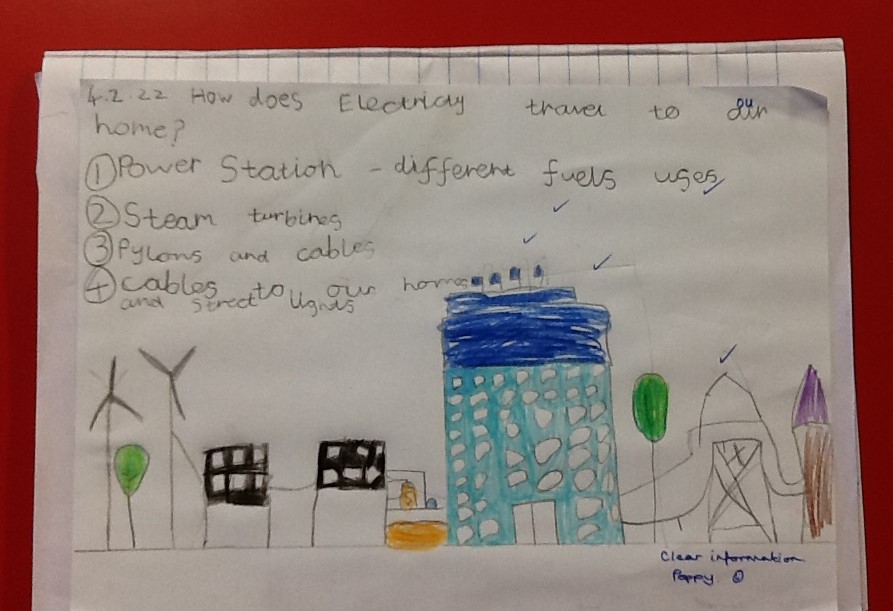 4.2.22 How does Electricity travel to our
home?
① Power Station - different fuels uses
② Steam turbines
③ Pylons and cables
④ cables to our homes
and street lights
Clear information
Poppy ☺